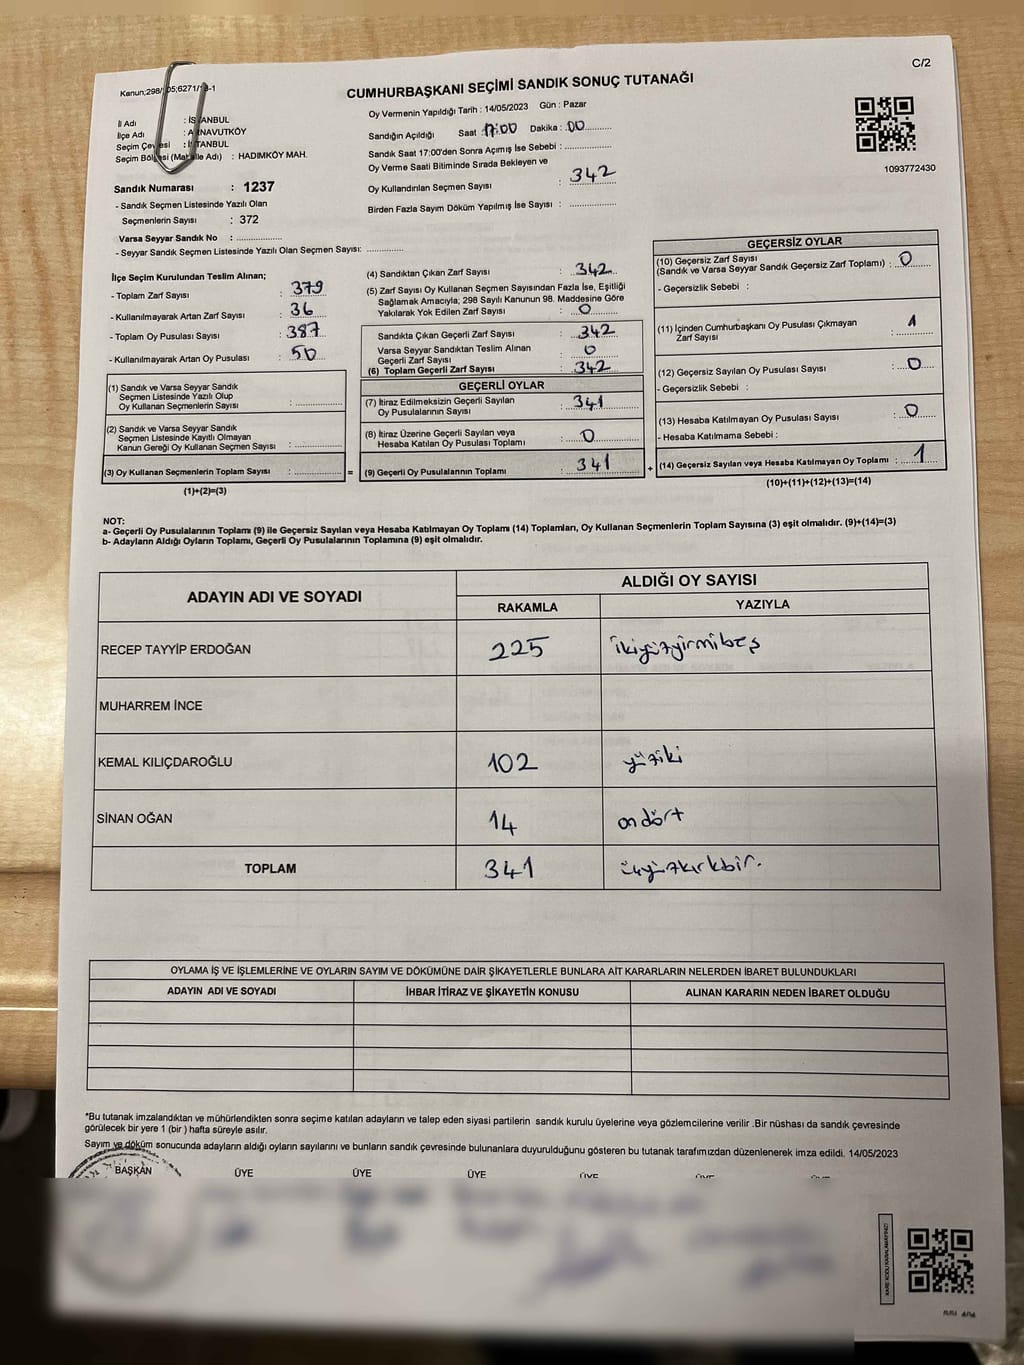 C/2
Kanun;298/ 05;6271/ 8-1
CUMHURBAŞKANI SEÇİMİ SANDIK SONUÇ TUTANAĞI
İl Adı : İSTANBUL
İlçe Adı : ARNAVUTKÖY
Seçim Çevresi : İSTANBUL
Seçim Bölgesi (Mahalle Adı) : HADIMKÖY MAH.
Sandık Numarası : 1237
- Sandık Seçmen Listesinde Yazılı Olan
Seçmenlerin Sayısı : 372
Varsa Seyyar Sandık No : ..............
- Seyyar Sandık Seçmen Listesinde Yazılı Olan Seçmen Sayısı: ............
Oy Vermenin Yapıldığı Tarih : 14/05/2023 Gün : Pazar
Sandığın Açıldığı Saat : 17:00 Dakika : 00
Sandık Saat 17:00'den Sonra Açılmış İse Sebebi : ..............
Oy Verme Saati Bitiminde Sırada Bekleyen ve
Oy Kullandırılan Seçmen Sayısı : 342
Birden Fazla Sayım Döküm Yapılmış İse Sayısı : ..............
1093772430
İlçe Seçim Kurulundan Teslim Alınan;
- Toplam Zarf Sayısı : 379
- Kullanılmayarak Artan Zarf Sayısı : 36
- Toplam Oy Pusulası Sayısı : 387
- Kullanılmayarak Artan Oy Pusulası : 50
(1) Sandık ve Varsa Seyyar Sandık
Seçmen Listesinde Yazılı Olup
Oy Kullanan Seçmenlerin Sayısı : ..............
(2) Sandık ve Varsa Seyyar Sandık
Seçmen Listesinde Kayıtlı Olmayan
Kanun Gereği Oy Kullanan Seçmen Sayısı : ..............
(3) Oy Kullanan Seçmenlerin Toplam Sayısı : ..............
(1)+(2)=(3)
=
(4) Sandıktan Çıkan Zarf Sayısı : 342
(5) Zarf Sayısı Oy Kullanan Seçmen Sayısından Fazla İse, Eşitliği
Sağlamak Amacıyla; 298 Sayılı Kanunun 98. Maddesine Göre
Yakılarak Yok Edilen Zarf Sayısı : 0
Sandıkta Çıkan Geçerli Zarf Sayısı : 342
Varsa Seyyar Sandıktan Teslim Alınan
Geçerli Zarf Sayısı : 0
(6) Toplam Geçerli Zarf Sayısı : 342
GEÇERLİ OYLAR
(7) İtiraz Edilmeksizin Geçerli Sayılan
Oy Pusulalarının Sayısı : 341
(8) İtiraz Üzerine Geçerli Sayılan veya
Hesaba Katılan Oy Pusulası Toplamı : 0
(9) Geçerli Oy Pusulalarının Toplamı : 341
+
GEÇERSİZ OYLAR
(10) Geçersiz Zarf Sayısı
(Sandık ve Varsa Seyyar Sandık Geçersiz Zarf Toplamı) : 0
- Geçersizlik Sebebi :
(11) İçinden Cumhurbaşkanı Oy Pusulası Çıkmayan
Zarf Sayısı : 1
(12) Geçersiz Sayılan Oy Pusulası Sayısı : 0
- Geçersizlik Sebebi :
(13) Hesaba Katılmayan Oy Pusulası Sayısı : 0
- Hesaba Katılmama Sebebi :
(14) Geçersiz Sayılan veya Hesaba Katılmayan Oy Toplamı : 1
(10)+(11)+(12)+(13)=(14)
NOT:
a- Geçerli Oy Pusulalarının Toplamı (9) ile Geçersiz Sayılan veya Hesaba Katılmayan Oy Toplamı (14) Toplamları, Oy Kullanan Seçmenlerin Toplam Sayısına (3) eşit olmalıdır. (9)+(14)=(3)
b- Adayların Aldığı Oyların Toplamı, Geçerli Oy Pusulalarının Toplamına (9) eşit olmalıdır.
ADAYIN ADI VE SOYADI ALDIĞI OY SAYISI
RAKAMLA YAZIYLA
RECEP TAYYİP ERDOĞAN 225 ikiyüzyirmibeş
MUHARREM İNCE
KEMAL KILIÇDAROĞLU 102 yüziki
SİNAN OĞAN 14 ondört
TOPLAM 341 üçyüzkırkbir.
OYLAMA İŞ VE İŞLEMLERİNE VE OYLARIN SAYIM VE DÖKÜMÜNE DAİR ŞİKAYETLERLE BUNLARA AİT KARARLARIN NELERDEN İBARET BULUNDUKLARI
ADAYIN ADI VE SOYADI İHBAR İTİRAZ VE ŞİKAYETİN KONUSU ALINAN KARARIN NEDEN İBARET OLDUĞU
*Bu tutanak imzalandıktan ve mühürlendikten sonra seçime katılan adayların ve talep eden siyasi partilerin sandık kurulu üyelerine veya gözlemcilerine verilir .Bir nüshası da sandık çevresinde
görülecek bir yere 1 (bir ) hafta süreyle asılır.
Sayım ve döküm sonucunda adayların aldığı oyların sayılarını ve bunların sandık çevresinde bulunanlara duyurulduğunu gösteren bu tutanak tarafımızdan düzenlenerek imza edildi. 14/05/2023
BAŞKAN ÜYE ÜYE ÜYE ÜYE ÜYE ÜYE